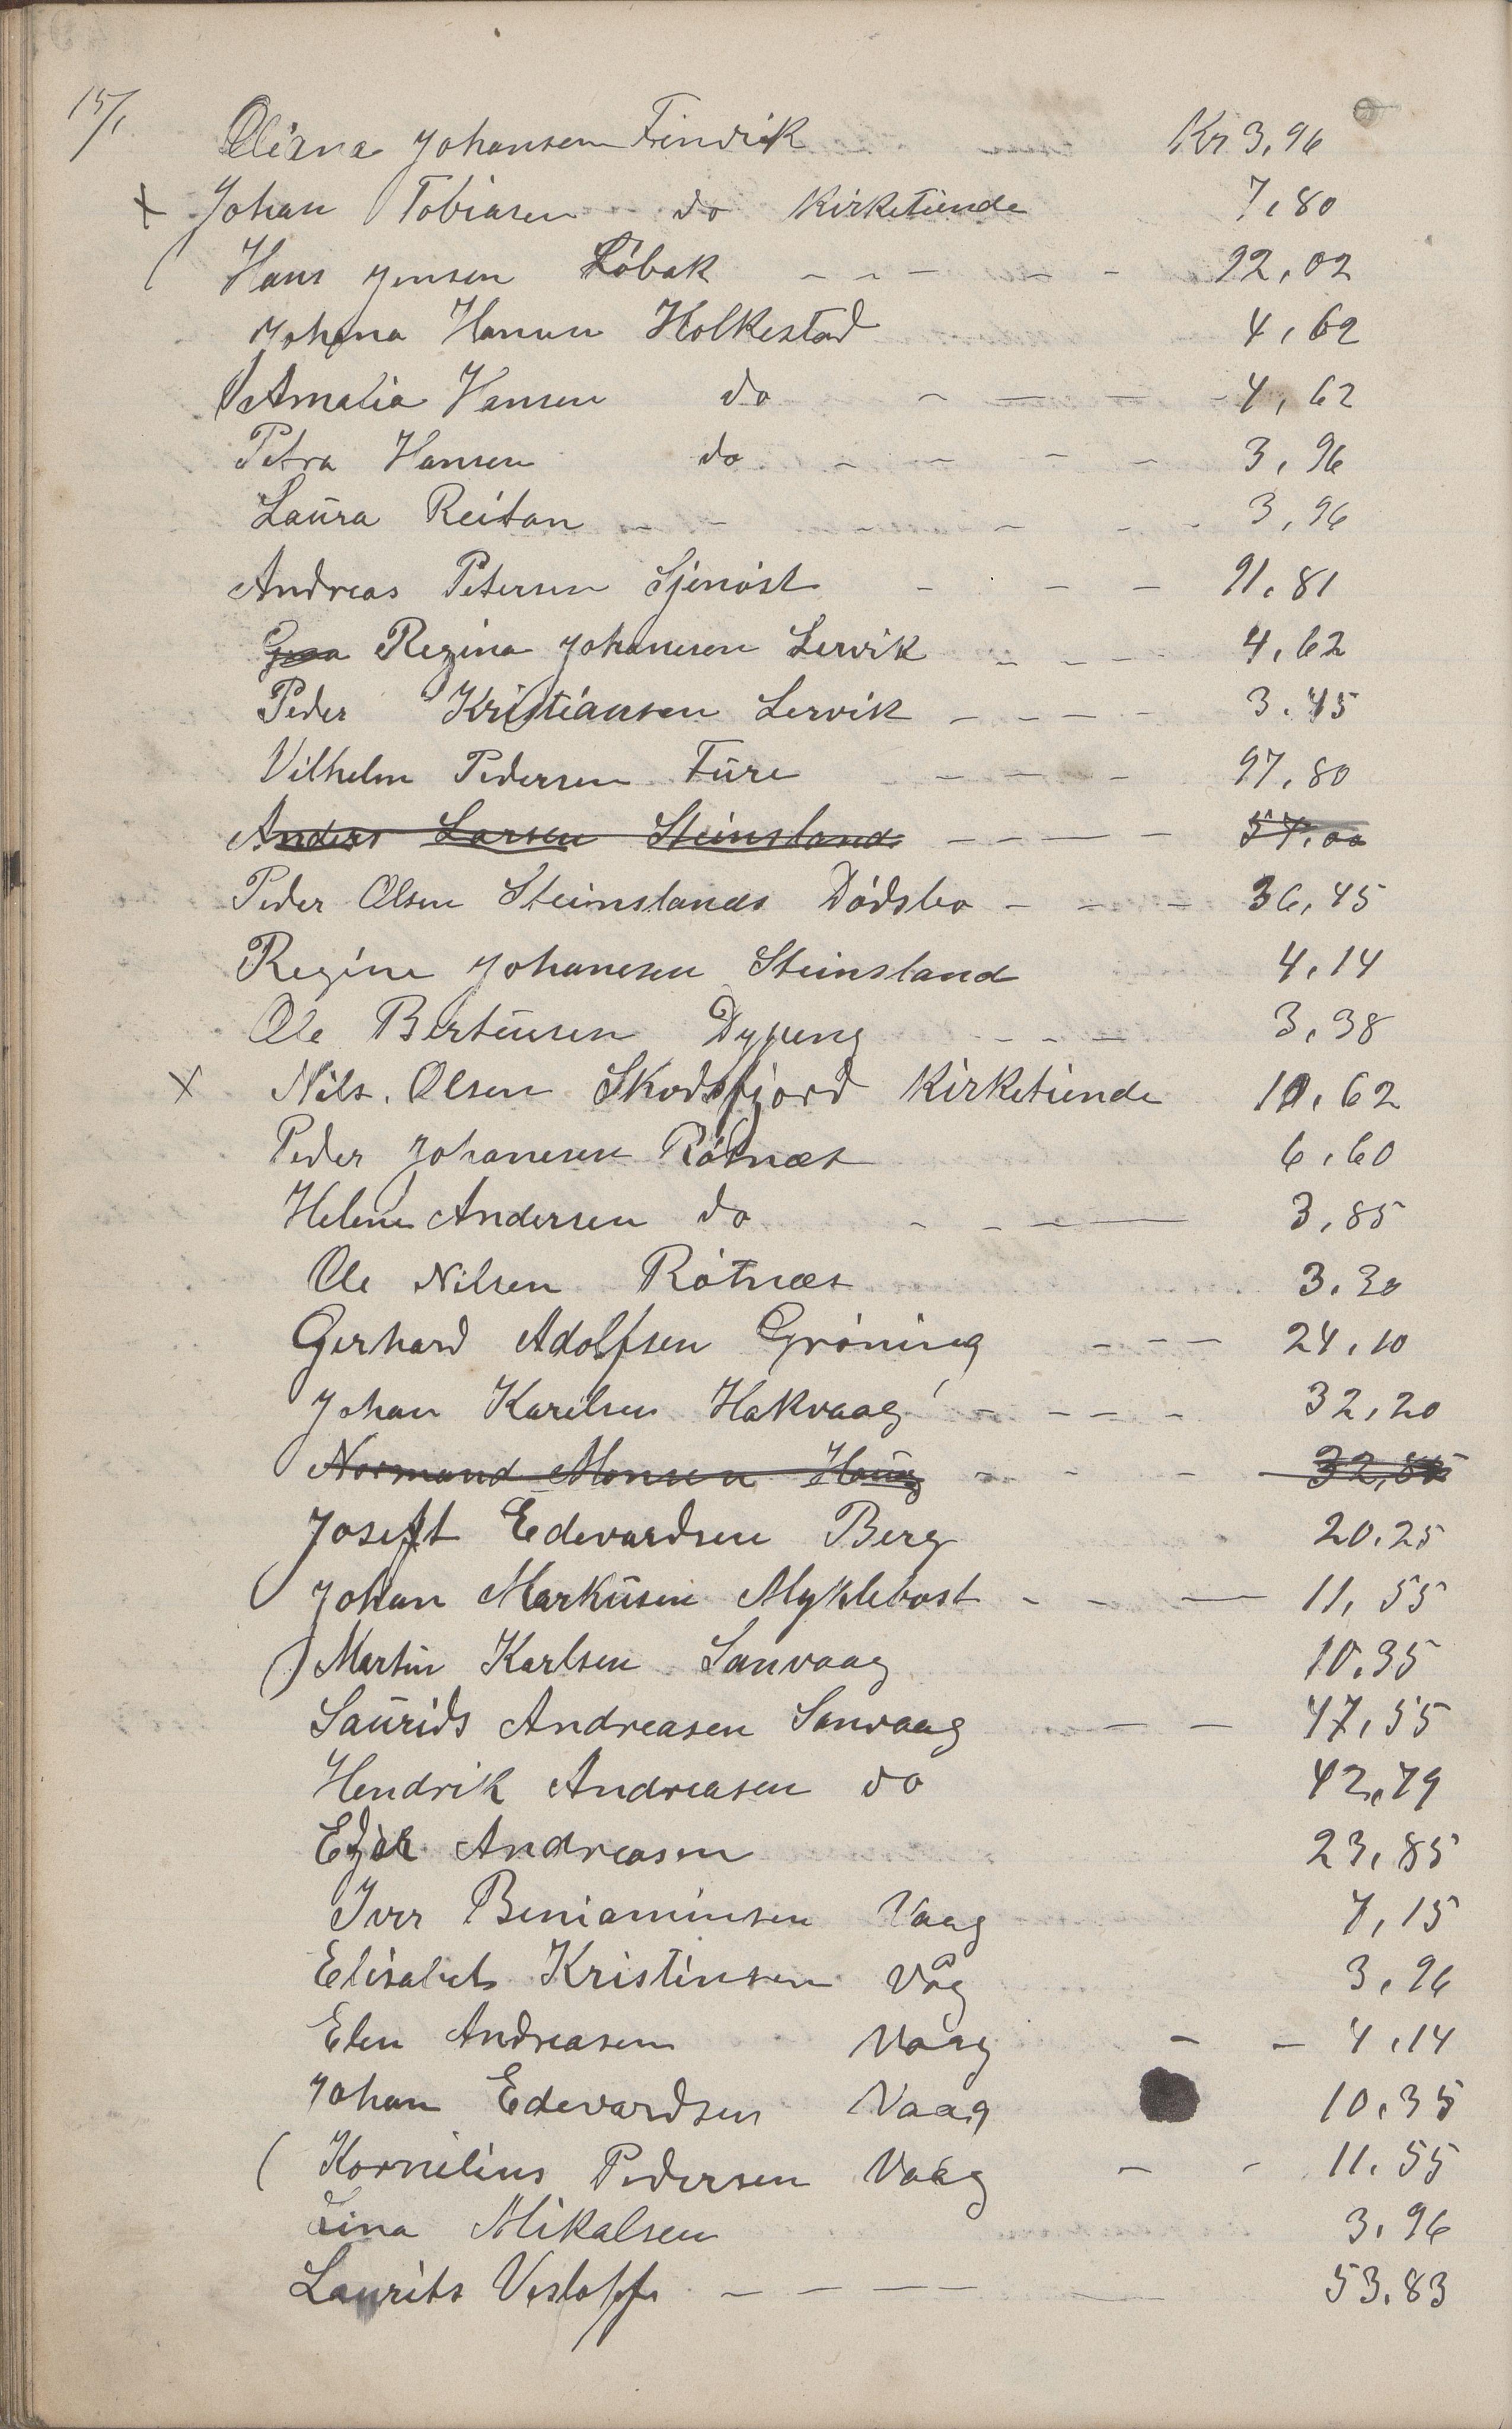 15/1 Oliana Johansen Finvik Kr 3,96
x Johan Tobiasen do Kirketiende 7,80
( Hans Jensen Löbak - - - - - 22,02
Johana Hansen Holkestad 4,62
( Amalia Hansen do - - - - 4,62
Petra Hansen do - - - - 3,96
Laura Reitan - - - - - 3,96
Andreas Petersen Sjenöst - - - 91,81
Regina Johansen Lervik - - - 4,62
Peder Kristiansen Lervik - - - - 3,45
Vilhelm Pedersen Füre - - - - 97,80
Anders Larsen Steinsland - - - - 57,00
Peder Olsen Steinslands Dödsbo - - - 36,45
Regine Johanesen Steinsland 4,14
Ole Berteusen Dypeng - - - 3,38
x Nils. Olsen Skodsfjord Kirketiende 10,62
Peder Johanesen Rötnæs 6,60
Helene Andersen do - - - - 3,85
Ole Nilsen Rötnæs 3,30
Gerhard Adolfsen Gröning - - - 24,10
Johan Karelsen Hakvaag - - - - 32,20
Normand Monsen Haug - - - - 32,85
Joseft Edevardsen Berg 20,25
( Johan Markusen Myklebost - - - 11,55
() Martin Karlsen Sanvaag 10,35
Laurids Andreasen Sanvaag - - 47,55
Hendrik Andreasen do 42,79
Andreasen 23,85
Iver Beniaminsen Vaag 7,15
Elisabet Kristinsen Våg 3,96
Elen Andreasen Vaag - - 4,14
Johan Edevardsen Vaag 10,35
( Kornelius Pedersen Vaag - - 11,55
Lina Mikalsen 3,96
Laurits Vestoff - - - - 53,83